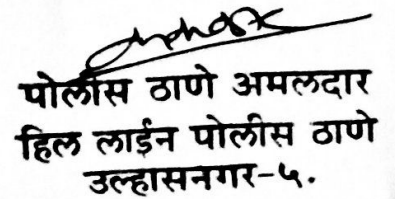 पोलीस ठाणे अमलदार
हिल लाईन पोलीस ठाणे
उल्हासनगर-५.